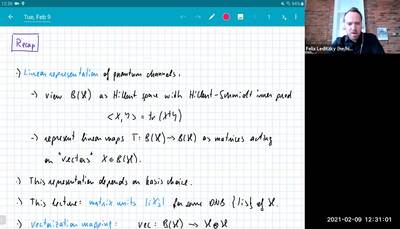 12:30
94%
Tue, Feb 9
Recap
·) Linear representation of quantum channels.
→ view B(H) as Hilbert space with Hilbert-Schmidt inner prod
<X,Y> = tr(X†Y)
→ represent linear maps T: B(H)→B(H) as matrices acting
on "vectors" X∈B(H).
·) This representation depends on basis choice.
·) This lecture: matrix units |i><j| for some ONB {|i>} of H.
·) vectorization mapping: vec: B(H) → H⊗H
Felix Leditzky (he/hi
2021-02-09 12:31:01